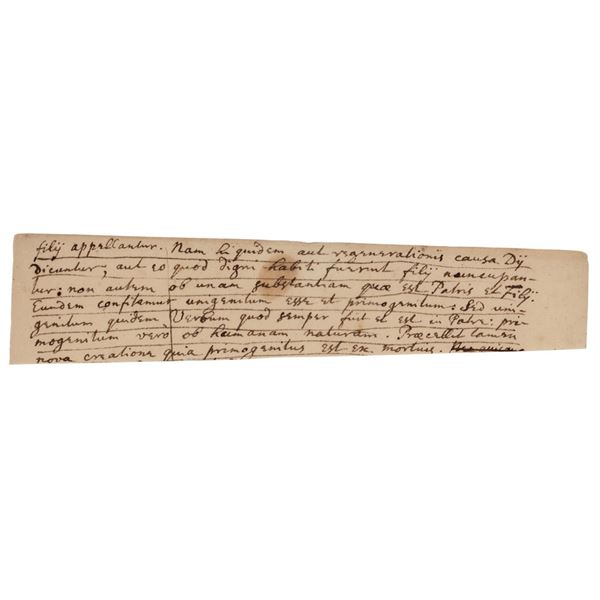 filij appellantur. Nam hi quidem aut regenerationis causa Dij
dicuntur, aut eo quod digni habiti fuerint filij nuncupan-
tur: non autem ob unam substantiam quæ est Patris et Filij.
Eundem confitemur unigenitum esse et primogenitum: Sed uni-
genitum quidem Verbum quod semper fuit et est in Patre: pri-
mogenitum verò ob humanam naturam. Præcellit tamen
nova creatione quia primogenitus est ex mortuis.